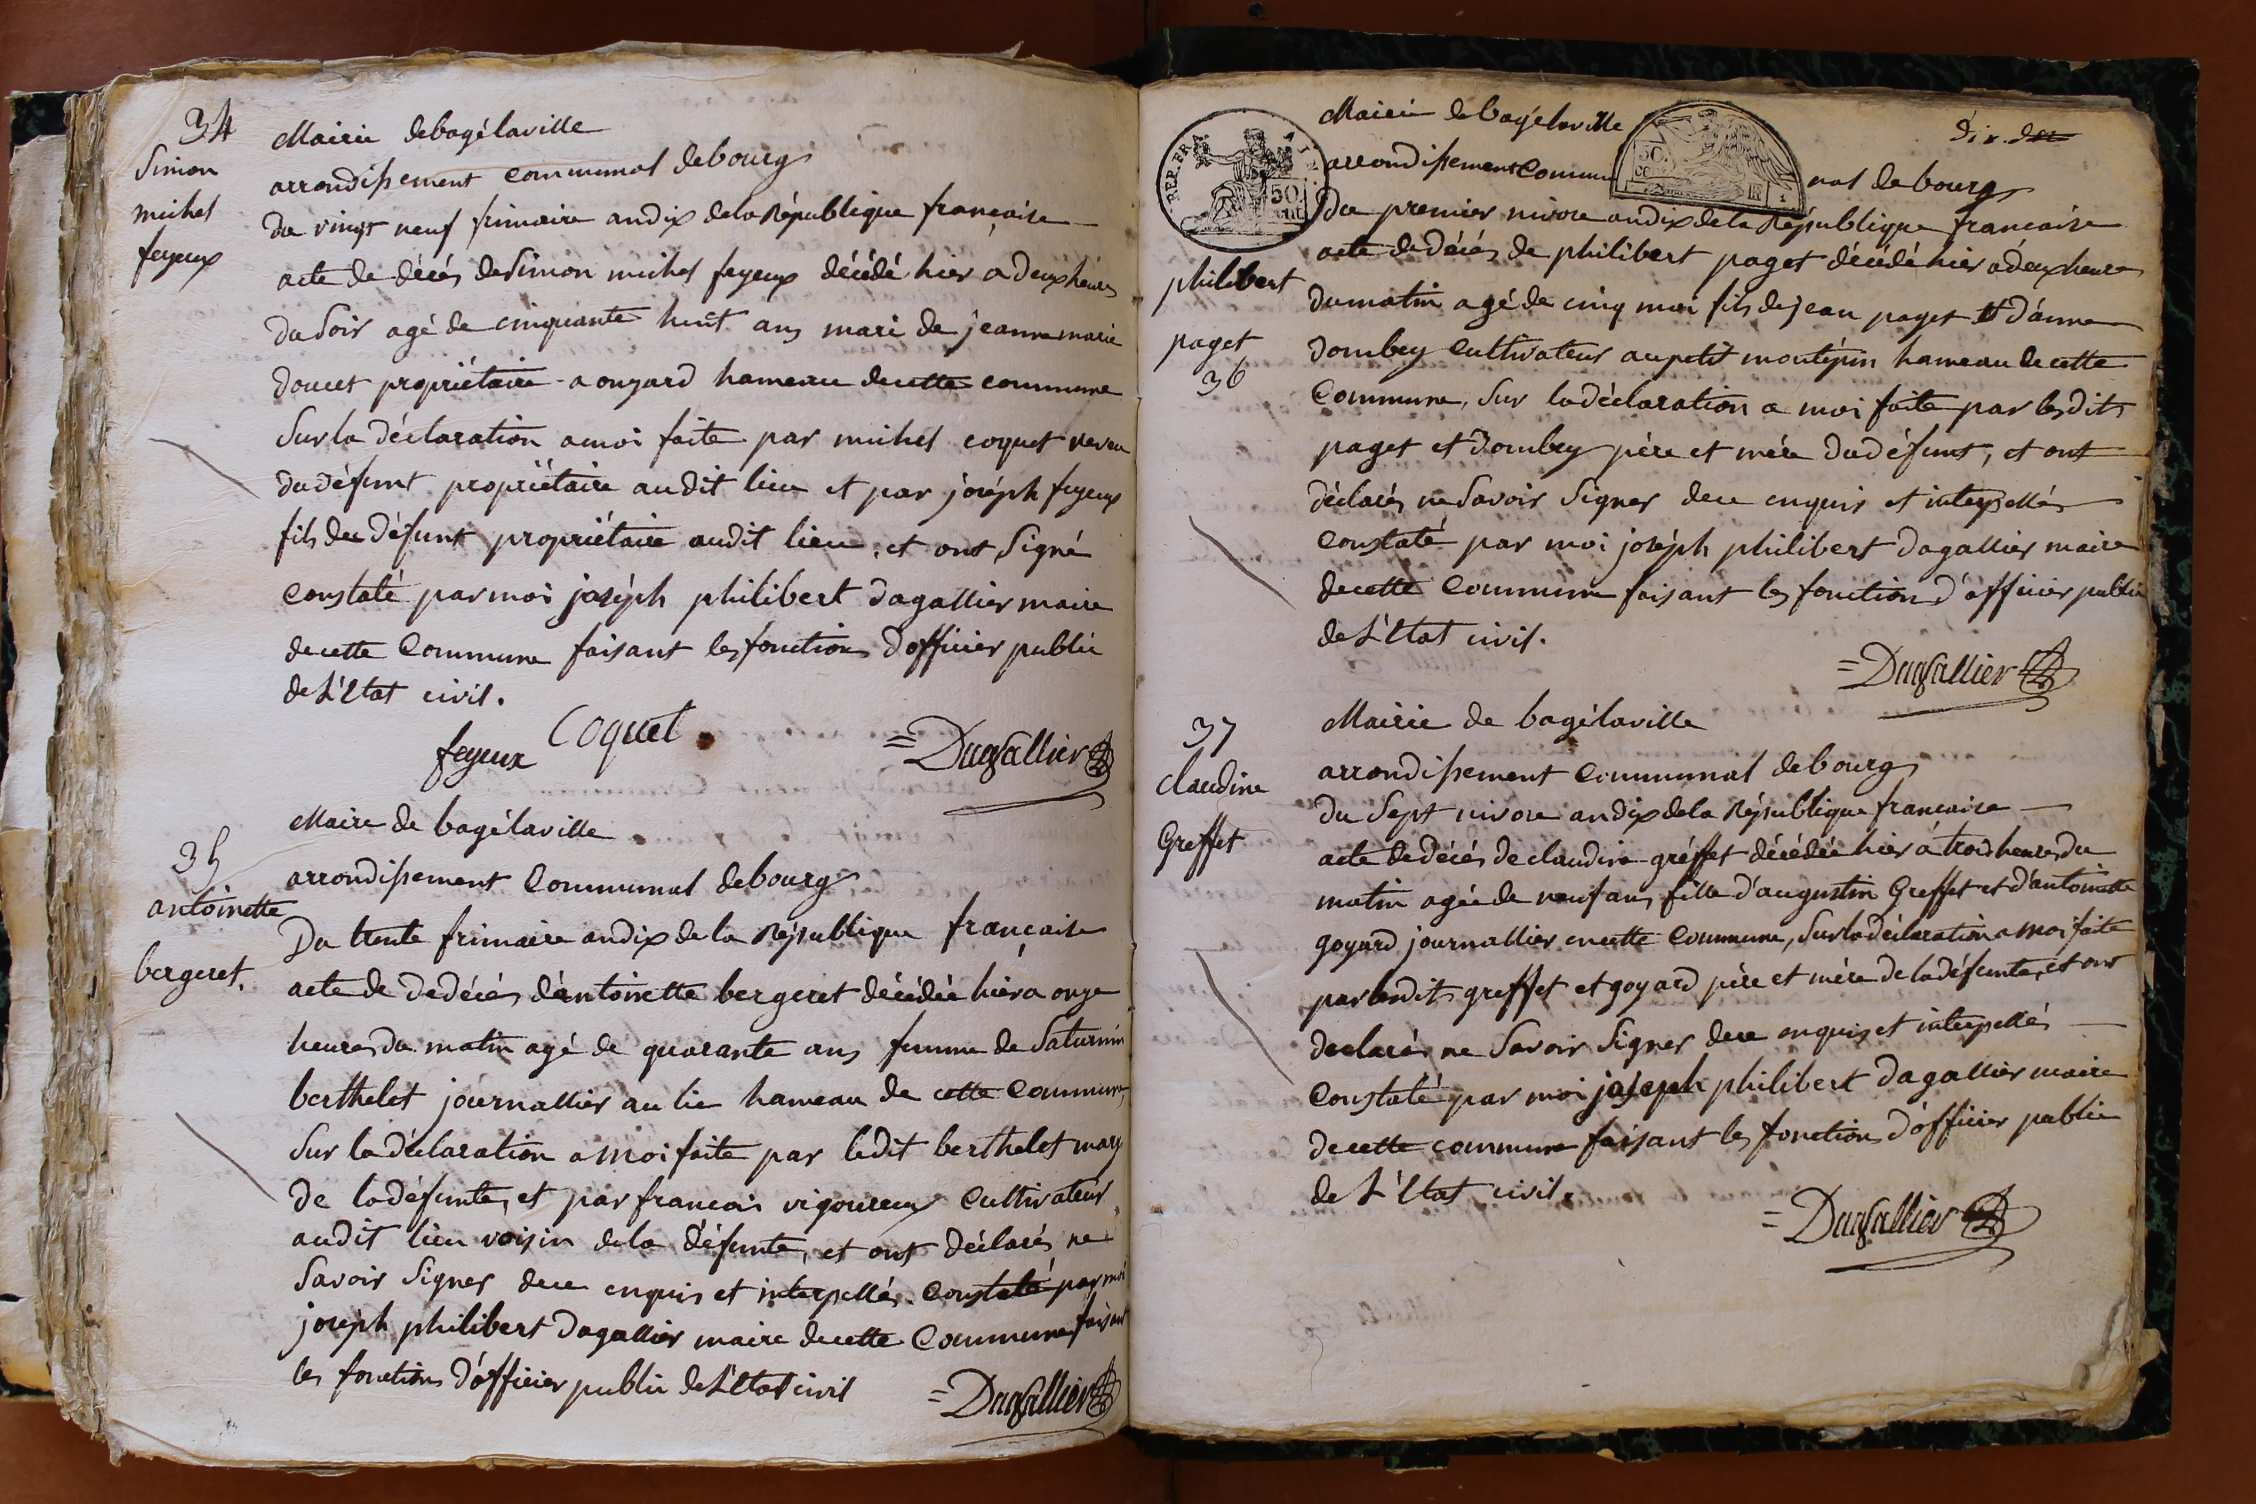 34
Simon
michel
feyeux
Mairie de bagélaville
arrondissement communal de bourg
du vingt neuf frimaire an dix de la République française
acte de décés de Simon michel feyeux décédé hier a deux heures
du Soir agé de cinquante huit ans mari de jeanne marie
doucet propriétaire a onzard hameau de cette commune
Sur la déclaration a moi faite par michel coquet neveu
du défunt propriétaire audit lieu et par joséph feyeux
fils du défunt propriétaire audit lieu, et ont Signé
constaté par moi joséph philibert dagallier maire
de cette Commune faisant les fonctions d'officier public
de L'Etat civil.
feyeux Coquet =Dagallier
35
antoinette
bergeret.
Maire de bagélaville
arrondissement Communal de bourg
Du trente frimaire an dix de la République française
acte de de décés d'antoinette bergeret décédée hier a onze
heures du matin agé de quarante ans femme de Saturnin
berthelet journallier au lie hameau de cette Commune,
Sur la déclaration a moi faite par ledit berthelet mary
de la défunte, et par francois vigoureux Cultivateur
audit lieu voisin de la défunte, et ont déclarés ne
Savoir Signer de ce enquis et interpellés. Constaté par moi
joséph philibert dagallier maire de cette Commune faisant
les fonctions d'officier public de L'Etat civil =Dagallier
REP. FRA
50
cent.
50.
CO
Mairie de bagélaville
dix.
arrondissement Commu nal de bourg
Du premier nivose an dix de la République francaise
acte de décés de philibert paget décédé hier a deux heures
philibert
paget
36
du matin agé de cinq moi fils de jean paget et d'anne
dombey Cultivateur au petit montépin hameau de cette
Commune, Sur la déclaration a moi faite par lesdits
paget et dombey père et mére du défunt, et ont
déclarés ne Savoir Signer de ce enquis et interpellés
Constaté par moi joséph philibert dagallier maire
de cette Commune faisant les fonction d'officier public
de L'Etat civil.
=Dagallier
37
claudine
Greffet
Mairie de bagélaville
arrondissement Communal de bourg
du Sept nivose an dix de la République francaise
acte de décés de claudine gréffet décédée hier á trois heures du
matin agée de neuf ans fille d'augustin Greffet et d'antoinette
goyard journallier en cette Commune, Sur la déclaration a moi faite
par lesdits greffet et goyard pére et mére de la défunte, et ont
declarés ne Savoir Signer de ce enquis et interpellés
Constaté par moi joseph philibert dagallier maire
de cette commune faisant les fonctions d'officier public
de L'Etat civil.
=Dagallier